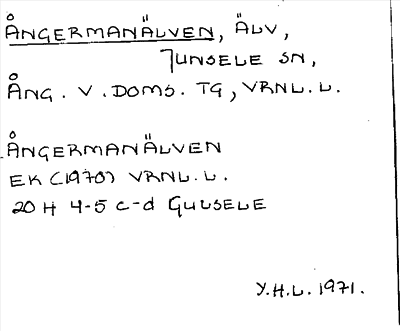 ÅNGERMANÄLVEN, ÄLV,
JUNSELE SN,
ÅNG. V. DOMS. TG, VRNL. L.
ÅNGERMANÄLVEN
EK (1970) VRNL. L.
20 H 4-5 c-d GULSELE
Y.H.L. 1971.